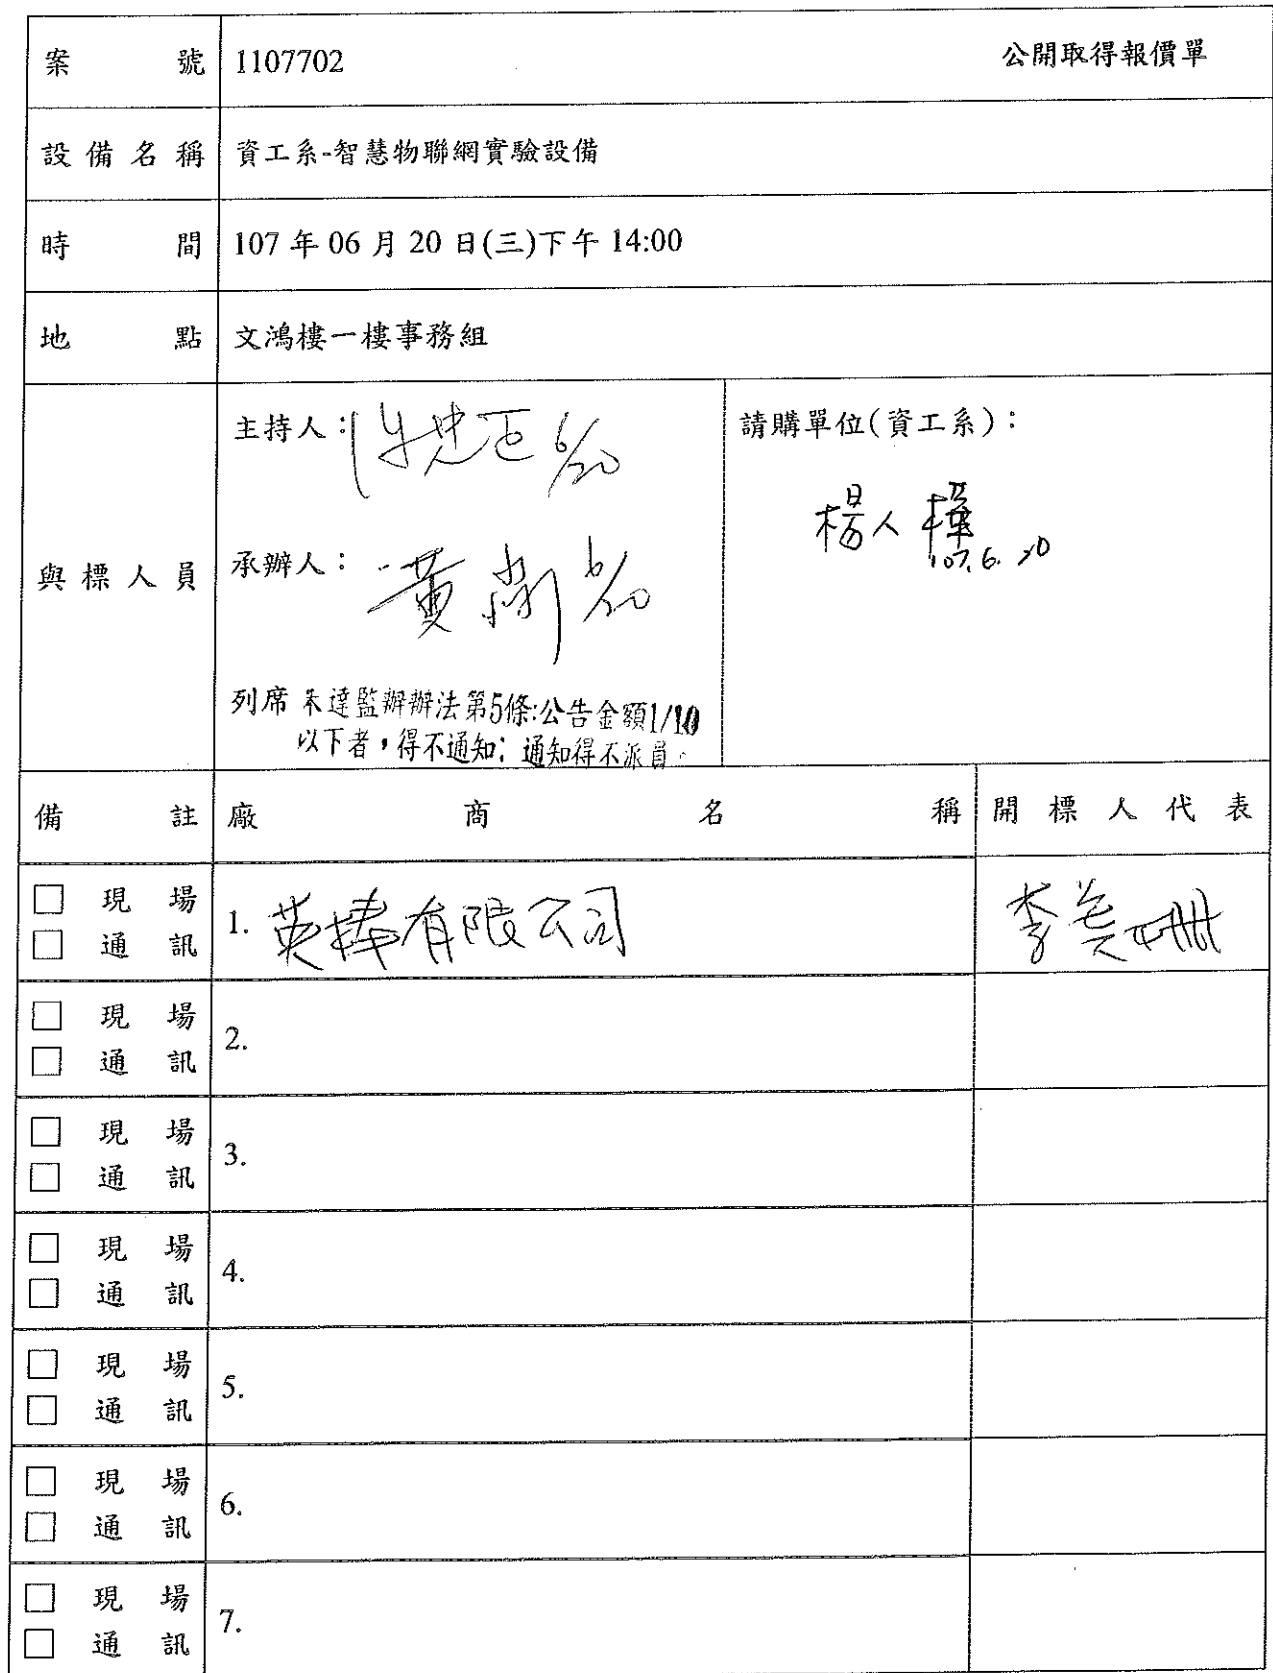 案號 1107702 公開取得報價單
設備名稱 資工系-智慧物聯網實驗設備
時間 107 年 06 月 20 日(三)下午 14:00
地點 文鴻樓一樓事務組
與標人員
主持人： 6/20
承辦人： 黃 6/20
列席 未達監辦辦法第5條:公告金額1/10
以下者，得不通知;通知得不派員。
請購單位(資工系)：
楊人樺
107.6.20
備註 廠商名稱 開標人代表
□ 現場
□ 通訊
1. 英棒有限公司 李美珊
□ 現場
□ 通訊
2.
□ 現場
□ 通訊
3.
□ 現場
□ 通訊
4.
□ 現場
□ 通訊
5.
□ 現場
□ 通訊
6.
□ 現場
□ 通訊
7.